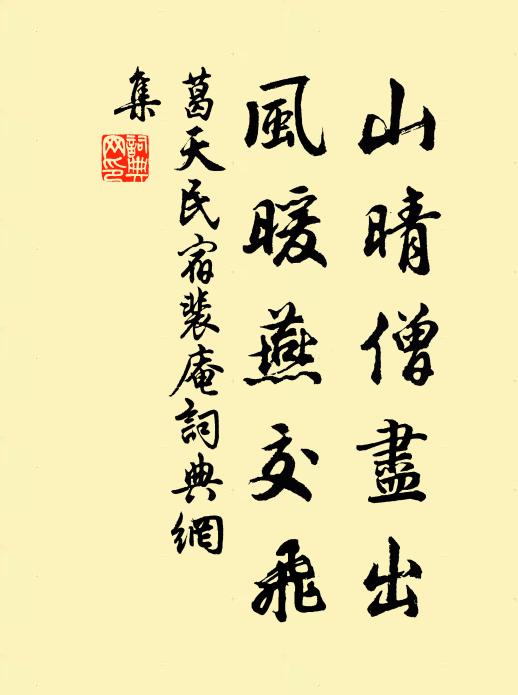 山晴僧盡出
風暖燕交飛
葛天民宿裴庵詞典網
集
詞典網印